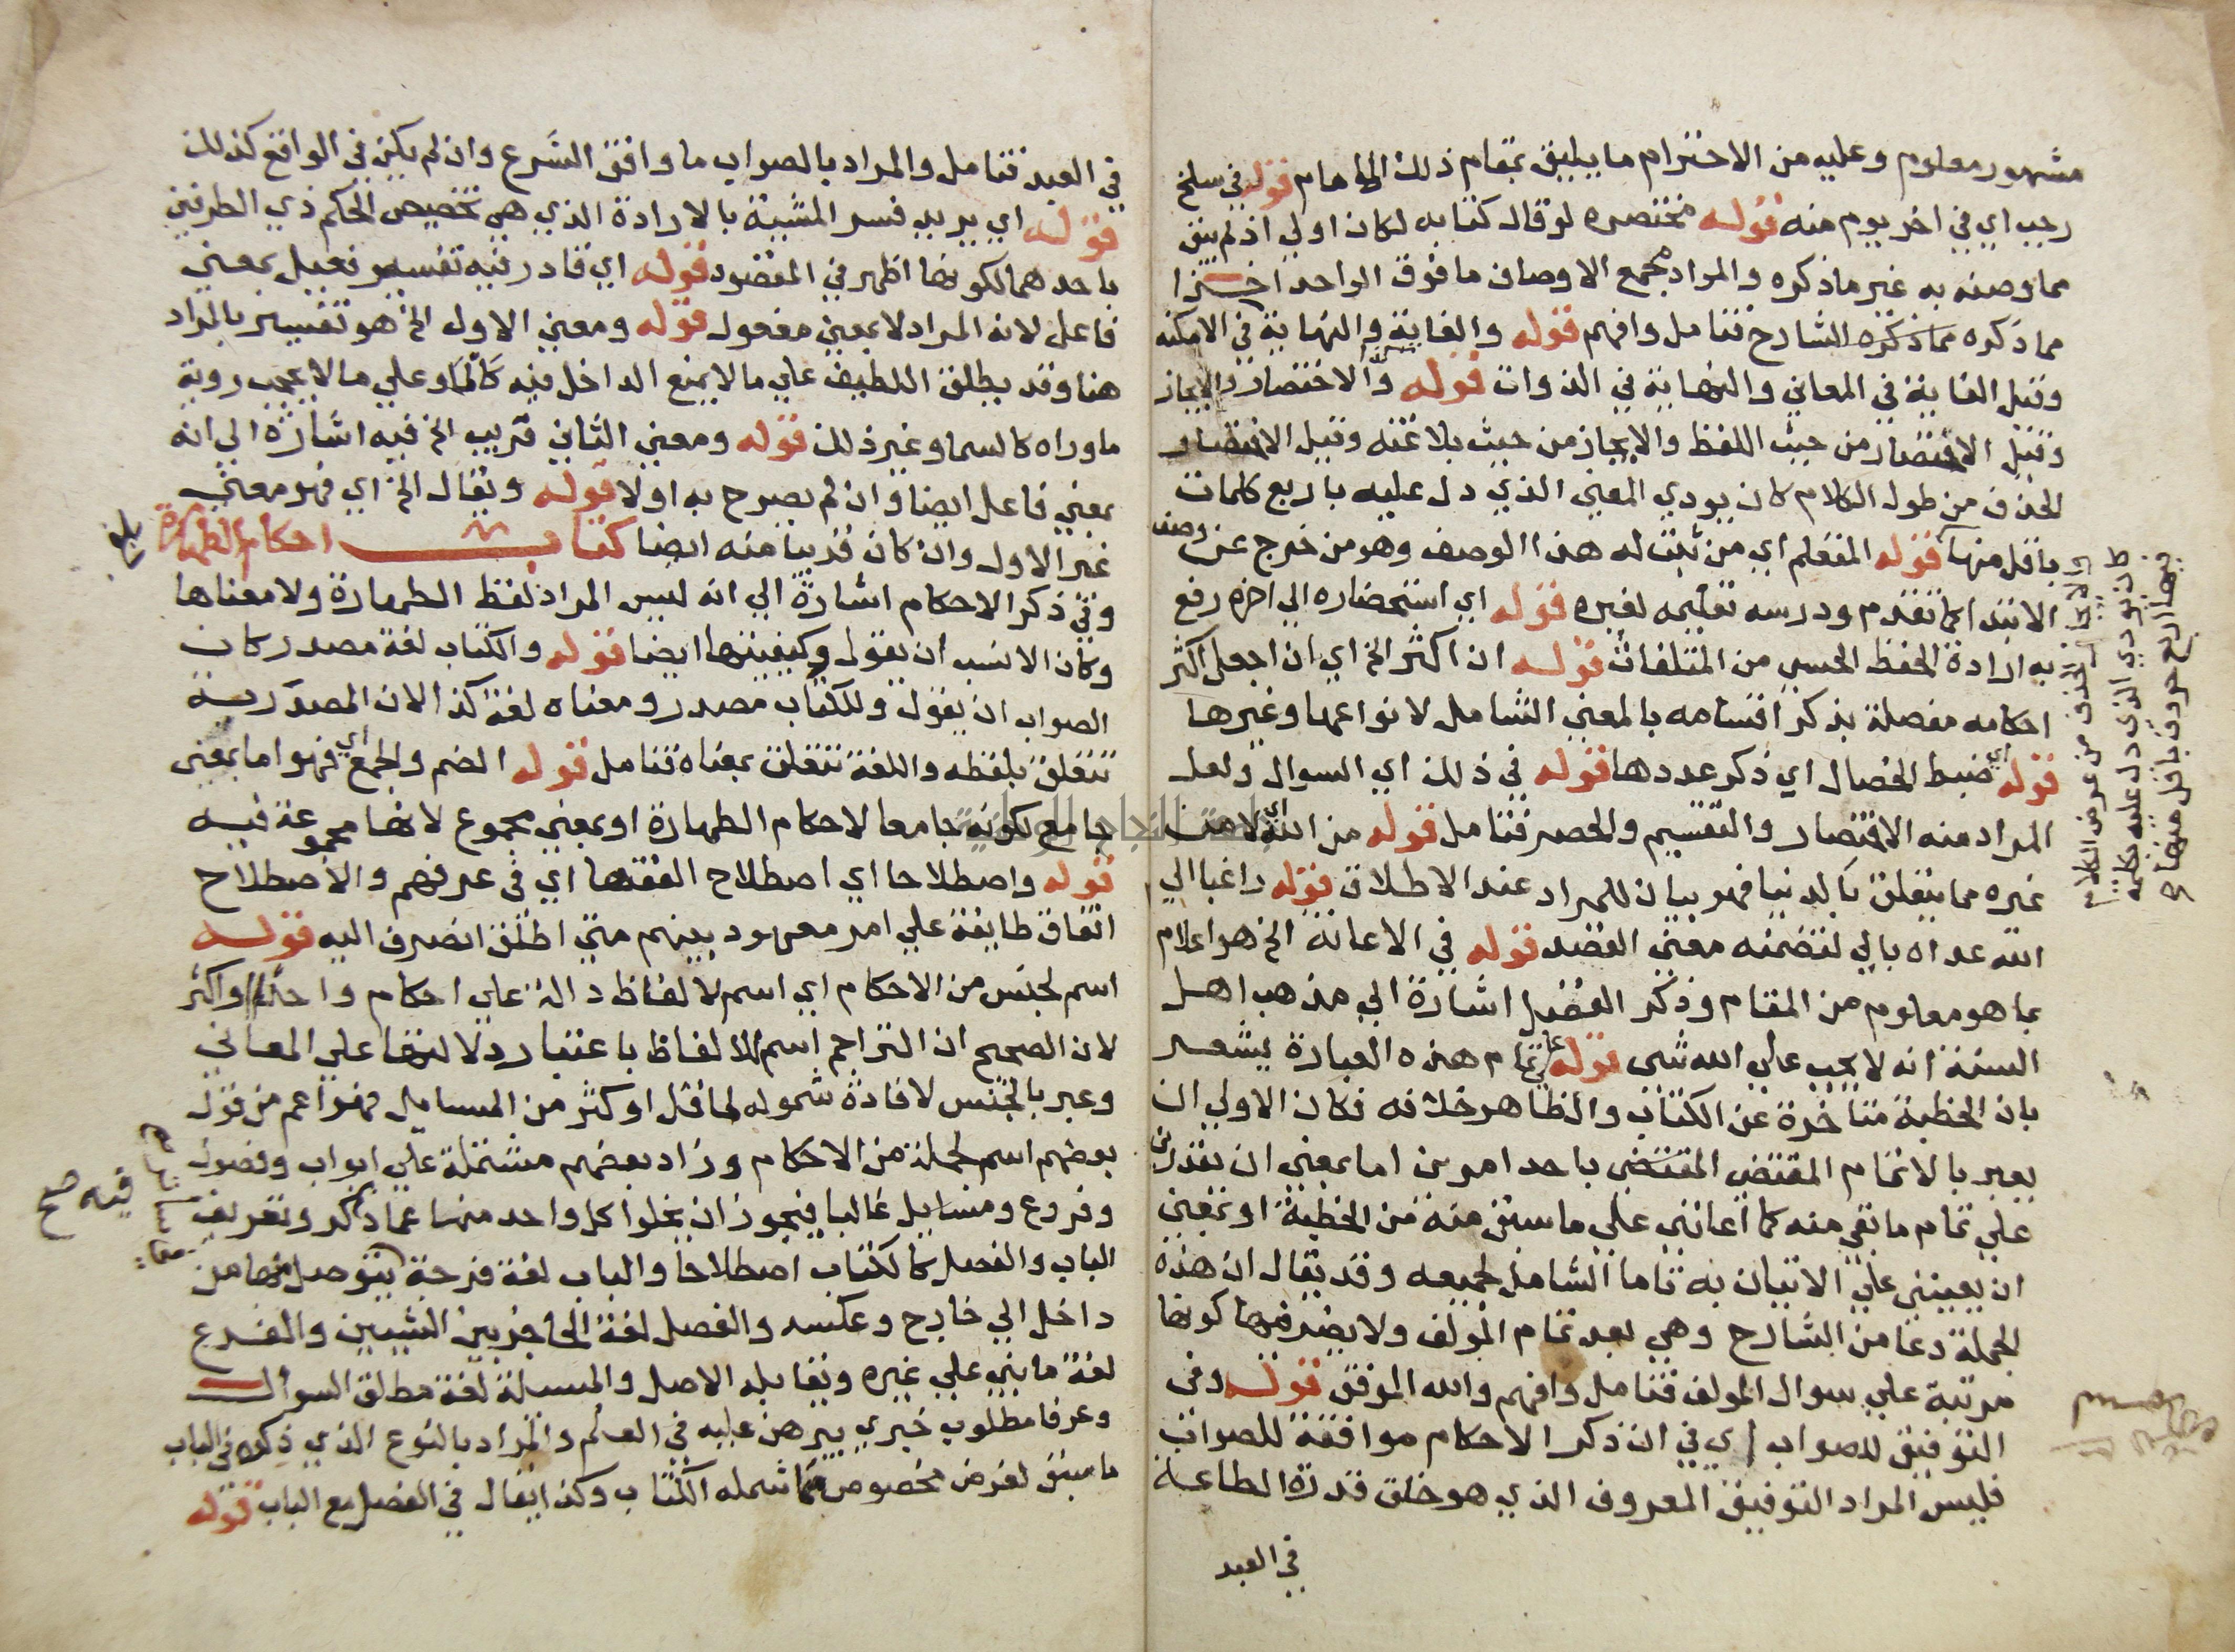 مشهور معلوم وعليه من الاحترام ما يليق بمقام ذلك الهمام قوله في سلخ
رجب اي في اخر يوم منه قوله مختصره لو قال كتابه لكان اولي اذ لم يبق
مما وصفه به غير ما ذكره والمراد بجمع الاوصاف ما فوق الواحد احترازا
مما ذكره مما ذكره الشارح فتامل وافهم قوله والغاية والنهاية في الامكنة
وقيل الغاية في المعاني والنهاية في الذوات قوله والاختصار والايجاز
وقيل الاختصار من حيث اللفظ والايجاز من حيث بلاغته وقيل الاختصار
الحذف من طول الكلام كان يودي المعني الذي دل عليه باربع كلمات
باقل منها قوله المتعلم اي من ثبت له هذا الوصف وهو من خرج عن وصف
الابتدا كما تقدم ودرسه تعليمه لغيره قوله اي استحضاره الي اخره رفع
به ارادة الحفظ الحسي من المتلفات قوله ان اكثر الخ اي ان اجعل اكثر
احكامه مفصلة بذكر اقسامه بالمعني الشامل لانواعها وغيرها
قوله اي ضبط الخصال اي ذكر عددها قوله في ذلك اي السوال ولعل
المراد منه الاختصار والتقسيم والحصر فتامل قوله من الله اي لا من
غيره مما يتعلق بالدنيا فهو بيان للمراد عند الاطلاق قوله راغبا الي
الله عداه بالي لتضمنه معني القصد قوله في الاعانة الخ هو اعلام
بما هو معلوم من المقام وذكر الفضل اشارة الي مذهب اهل
السنة انه لا يجب علي الله شي قوله علي تمام هذه العبارة يشعر
بان الخطبة متاخرة عن الكتاب والظاهر خلافه فكان الاولي ان
يعبر بالاتمام المقتضي المقتضي باحد امرين اما بمعني ان يقدرني
علي تمام ما بقي منه كما اعانني علي ما سبق منه من الخطبة او بمعني
ان يعينني علي الاتيان به تاما الشامل لجميعه وقد يقال ان هذه
الجملة دعا من الشارح وهي بعد تمام المولف ولا يضر فيها كونها
مرتبة علي سوال المولف فتامل وافهم والله الموفق قوله وفي
التوفيق للصواب اي في ان ذكر الاحكام موافقة للصواب
فليس المراد التوفيق المعروف الذي هو خلق قدرة الطاعة
في العبد
والايجاز الحذف من عرض الكلام
كان يودي الذي دل عليه كلمة
فيها اربع حروف باقل منها صح
في العبد فتامل والمراد بالصواب ما وافق الشرع وان لم يكن في الواقع كذلك
قوله اي يريد فسر المشيئة بالارادة الذي هي تخصيص الحكم ذي الطرفين
باحدهما لكونها اظهر في المقصود قوله اي قادر فيه تفسير فعيل بمعني
فاعل لانه المراد لا بمعني مفعول قوله ومعني الاول الخ هو تفسير بالمراد
هنا وقد يطلق اللطيف علي ما لا يمنع الداخل فيه كالما وعلي ما لا يحجب روية
ما وراه كالسما وغير ذلك قوله ومعني الثاني قريب الخ فيه اشارة الي انه
بمعني فاعل ايضا وان لم يصرح به اولا قوله ويقال الخ اي فهو معني
غير الاول وان كان قريبا منه ايضا كتاب احكام الطهارة
وفي ذكر الاحكام اشارة الي انه ليس المراد لفظ الطهارة ولا معناها
وكان الانسب ان يقول وكيفيتها ايضا قوله والكتاب لغة مصدر كان
الصواب ان يقول وللكتاب مصدر ومعناه لغة كذا لان المصدرية
تتعلق بلفظه واللغة تتعلق بمعناه فتامل قوله الضم والجمع اي فهو اما بمعني
جامع لكونه جامعا لاحكام الطهارة او بمعني مجموع لانها مجموعة فيه
قوله واصطلاحا اي اصطلاح الفقها اي في عرفهم والاصطلاح
اتفاق طايفة علي امر معهود بينهم متي اطلق انصرف اليه قوله
اسم لجنس من الاحكام اي اسم لالفاظ دالة علي احكام واحد او اكثر
لان الصحيح ان التراجم اسم للالفاظ باعتبار دلالتها علي المعاني
وعبر بالجنس لافادة شموله لما قل او كثر من المسايل فهو اعم من قول
بعضهم اسم لجملة من الاحكام وزاد بعضهم مشتملة علي ابواب وفصول
وفروع ومسايل غالبا فيجوز ان يخلوا كل واحد منها عما ذكر وتعريف
الباب والفصل كالكتاب اصطلاحا والباب لغة فرجة يتوصل منها من
داخل الي خارج وعكسه والفصل لغة الحاجز بين الشيين والفرع
لغة ما بني علي غيره ويقابله الاصل والمسيلة لغة مطلق السوال
وعرفا مطلوب خبري يبرهن عليه في العلم والمراد بالنوع الذي ذكره في الباب
ما سيق لغرض مخصوص مما شمله الكتاب وكذا يقال في الفصل مع الباب قوله
بلغ
فيه صح